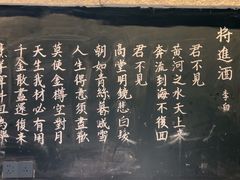 將進酒 李白
君不見
黃河之水天上來
奔流到海不復回
君不見
高堂明鏡悲白髮
朝如青絲暮成雪
人生得意須盡歡
莫使金樽空對月
天生我材必有用
千金散盡還復來